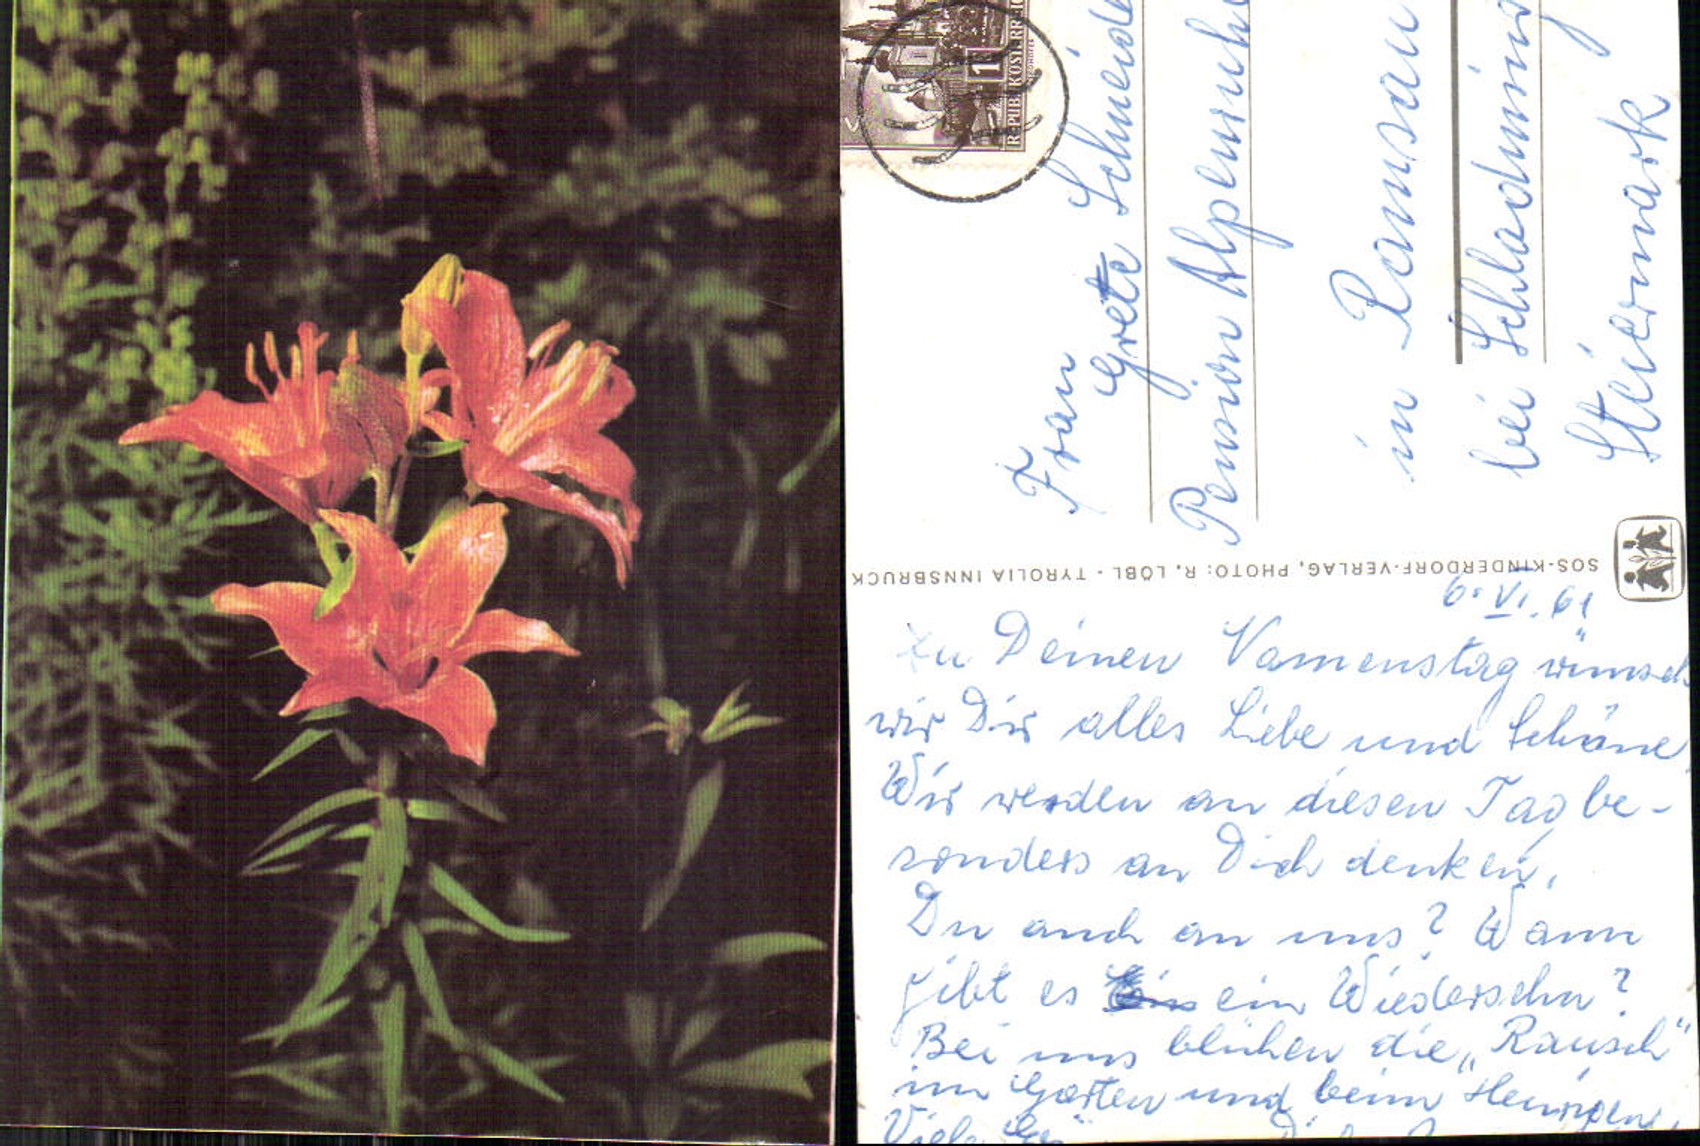 REPUBLIK ÖSTERREICH
1
Frau
Grete Schneide
Pension Alpenruhe
in Ramsau
bei Schladming
Steiermark
SOS-KINDERDORF-VERLAG, PHOTO: R. LÖBL - TYROLIA INNSBRUCK
6. VI. 61
Zu Deinem Namenstag wünsch
wir Dir alles Liebe und Schöne
Wir werden an diesen Tag be-
sonders an Dich denken,
Du auch an uns? Wann
gibt es ein Wiedersehn?
Bei uns blühen die „Rausch"
im Garten und beim Heurigen,
Viele